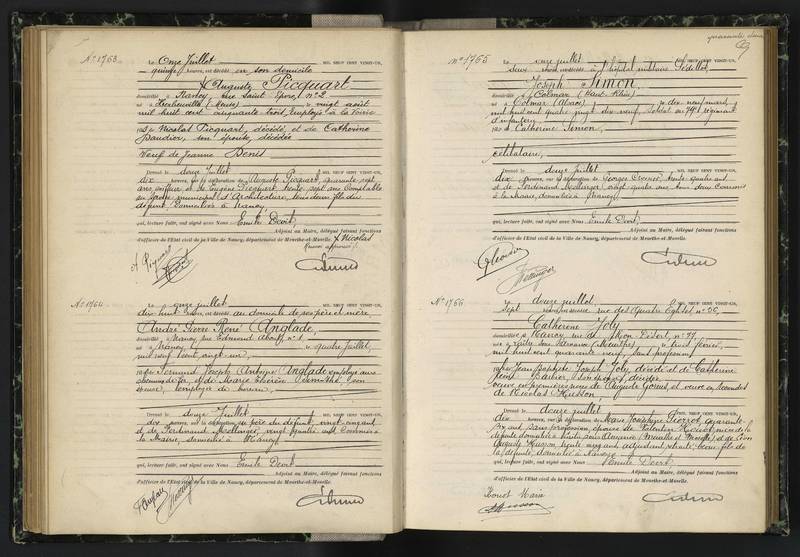 N° 1763
Le Onze Juillet MIL NEUF CENT VINGT-UN,
quinze heures, est décédé en son domicile
Auguste Picquart
domicilié à Nancy rue Saint Epvre, n° 2
né à (Meuse) le vingt août
mil huit cent cinquante trois, employé à la voirie
fils de Nicolas Picquart, décédé, et de Catherine
Baudier, son épouse, décédée
Veuf de Jeanne Denis
Dressé le douze Juillet MIL NEUF CENT VINGT-UN,
dix heures, sur la déclaration de Auguste Picquart, quarante sept
ans, coiffeur et de Eugène Picquart, trente sept ans, Comptable
au municipal d'Architecture, tous deux fils du
défunt domiciliés à Nancy
qui, lecture faite, ont signé avec Nous Emile Devit
Adjoint au Maire, délégué faisant fonctions
d'officier de l'État civil de la Ville de Nancy, département de Meurthe-et-Moselle. X Nicolas
approuvé
A. Picquart
N° 1764
Le onze juillet MIL NEUF CENT VINGT-UN,
dix huit heures, au domicile de ses père et mère,
André Pierre René Anglade,
domicilié à Nancy rue Edmond About, n° 1
né à Nancy, le quatre Juillet,
mil neuf cent vingt un,
fils de Fernand Joseph Antoine Anglade employé aux
chemins de fer, et de Marie Thérèse son
épouse, employée de bureau
Dressé le douze Juillet MIL NEUF CENT VINGT-UN,
dix heures, sur la déclaration du père du défunt, vingt cinq ans
et de Ferdinand vingt quatre ans Commis à
la Mairie, domicilié à Nancy
qui, lecture faite, ont signé avec Nous Emile Devit
Adjoint au Maire, délégué faisant fonctions
d'officier de l'État civil de la Ville de Nancy, département de Meurthe-et-Moselle.
Anglade
quarante deux
42
N° 1765
Le onze juillet MIL NEUF CENT VINGT-UN,
deux heures, à l'hôpital militaire Sédillot,
Joseph Simon,
domicilié à Colmar (Haut-Rhin)
né à Colmar (Alsace) le dix neuf mars,
mil huit cent quatre vingt dix neuf, soldat au régiment
d'infanterie,
fils de Catherine Simon,
célibataire,
Dressé le douze juillet MIL NEUF CENT VINGT-UN,
dix heures, sur la déclaration de Georges trente quatre ans
et de Ferdinand vingt quatre ans, tous deux Commis
à la Mairie, domiciliés à Nancy
qui, lecture faite, ont signé avec Nous Emile Devit
Adjoint au Maire, délégué faisant fonctions
d'officier de l'État civil de la Ville de Nancy, département de Meurthe-et-Moselle.
N° 1766
Le douze juillet MIL NEUF CENT VINGT-UN,
Sept heures, rue des Quatre Eglises, n° 56,
Catherine Joly
domiciliée à Nancy, rue de Mon Désert, n° 77
née à (Meurthe) le trois février,
mil huit cent quarante neuf, sans profession
fille de Jean Baptiste Joseph Joly, décédé et de Catherine
Barbier, son épouse, décédée
veuve en premières noces de Auguste et veuve en secondes
de Nicolas Husson,
Dressé le douze juillet MIL NEUF CENT VINGT-UN,
dix heures, sur la déclaration de Marie Joséphine Pierrot, quarante
six ans, sans profession, épouse de Valentin nièce de la
défunte domiciliée à (Meurthe et Moselle) et de Léon
Auguste Husson, trente cinq ans, adjudant, beau-fils de
la défunte, domicilié à Nancy
qui, lecture faite, ont signé avec Nous Emile Devit
Adjoint au Maire, délégué faisant fonctions
d'officier de l'État civil de la Ville de Nancy, département de Meurthe-et-Moselle.
Marie
Husson